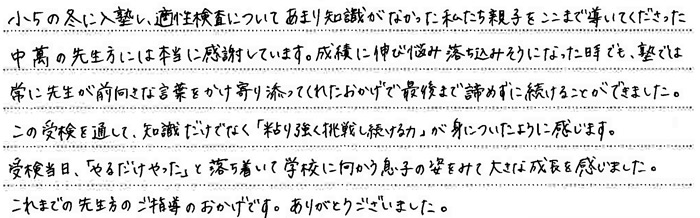 小5の冬に入塾し、適性検査についてあまり知識がなかった私たち親子をここまで導いてくださった
中萬の先生方には本当に感謝しています。成績に伸び悩み落ち込みそうになった日でも、塾では
常に先生が前向きな言葉をかけ寄り添ってくれたおかげで最後まで諦めずに続けることができました。
この受検を通して、知識だけでなく「粘り強く挑戦し続ける力」が身についたように感じます。
受検当日、「やるだけやった」と落ち着いて学校に向かう息子の姿をみて大きな成長を感じました。
これまでの先生方のご指導のおかげです。ありがとうございました。